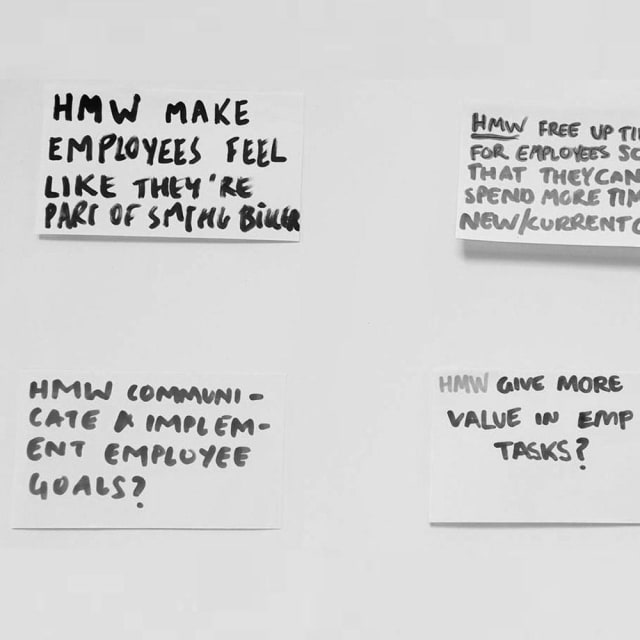 HMW MAKE
EMPLOYEES FEEL
LIKE THEY'RE
PART OF SMTHG BIGGER
HMW FREE UP TI
FOR EMPLOYEES SO
THAT THEY CAN
SPEND MORE TIM
NEW/CURRENT C
HMW COMMUNI-
CATE & IMPLEM-
ENT EMPLOYEE
GOALS?
HMW GIVE MORE
VALUE IN EMP
TASKS?